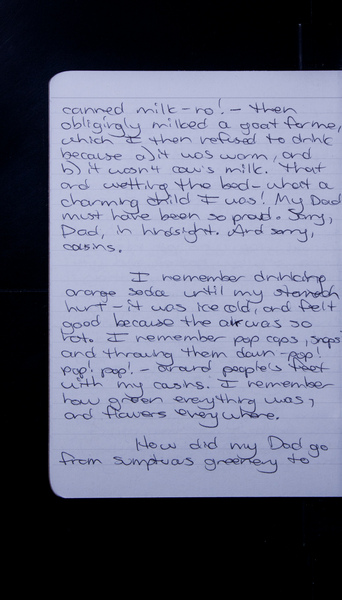 canned milk - no! - then
obligingly milked a goat for me,
which I then refused to drink
because a) it was warm, and
b) it wasn't cow's milk. That
and wetting the bed - what a
charming child I was! My Dad
must have been so proud. Sorry,
Dad, in hindsight. And sorry,
cousins.
I remember drinking
orange soda until my stomach
hurt - it was ice cold, and felt
good because the air was so
hot. I remember pop caps, snaps
and throwing them down - pop!
pop! pop! - around people's feet
with my cousins. I remember
how green everything was,
and flowers everywhere.
How did my Dad go
from sumptuous greenery to